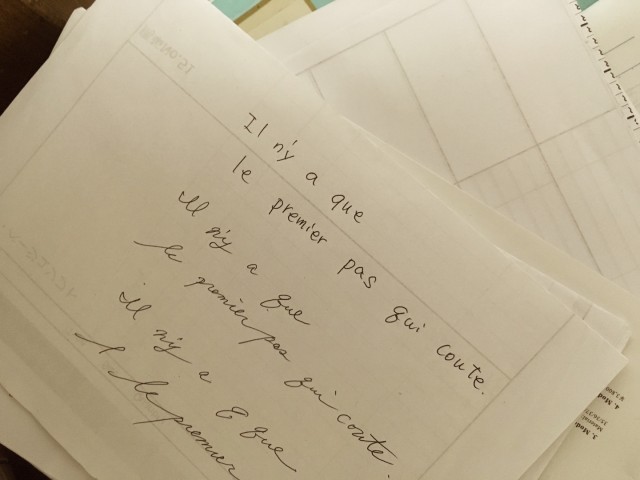 Il n'y a que
le premier pas qui coute.
Il n'y a que
le premier pas qui coute.
Il n'y a que
le premier
3. Mod
4. Mod